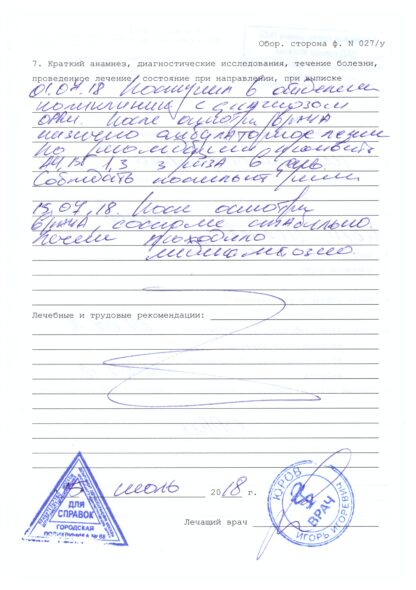 Обор. сторона ф. N 027/у
7. Краткий анамнез, диагностические исследования, течение болезни,
проведенное лечение, состояние при направлении, при выписке
01.07.18 Поступил в отделение
поликлиники с диагнозом
ОРВИ. После осмотра врача
назначено амбулаторное лечение
по
3 раза в
Соблюдать постельный режим
15.07.18. После осмотра
врача, состояние стабильно.
Лечение проходило
Лечебные и трудовые рекомендации:
15 июль 2018 г.
ДЛЯ
СПРАВОК
ГОРОДСКАЯ
ПОЛИКЛИНИКА № 88
Лечащий врач
ЮРОВ
ИГОРЬ ИГОРЕВИЧ
ВРАЧ